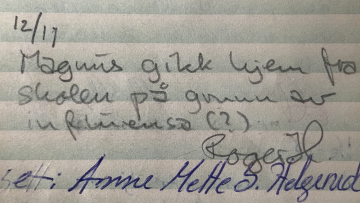 12/17
Magnus gikk hjem fra
skolen på grunn av
influensa (?)
Roger H
sett: Anne Mette S. Helgerud